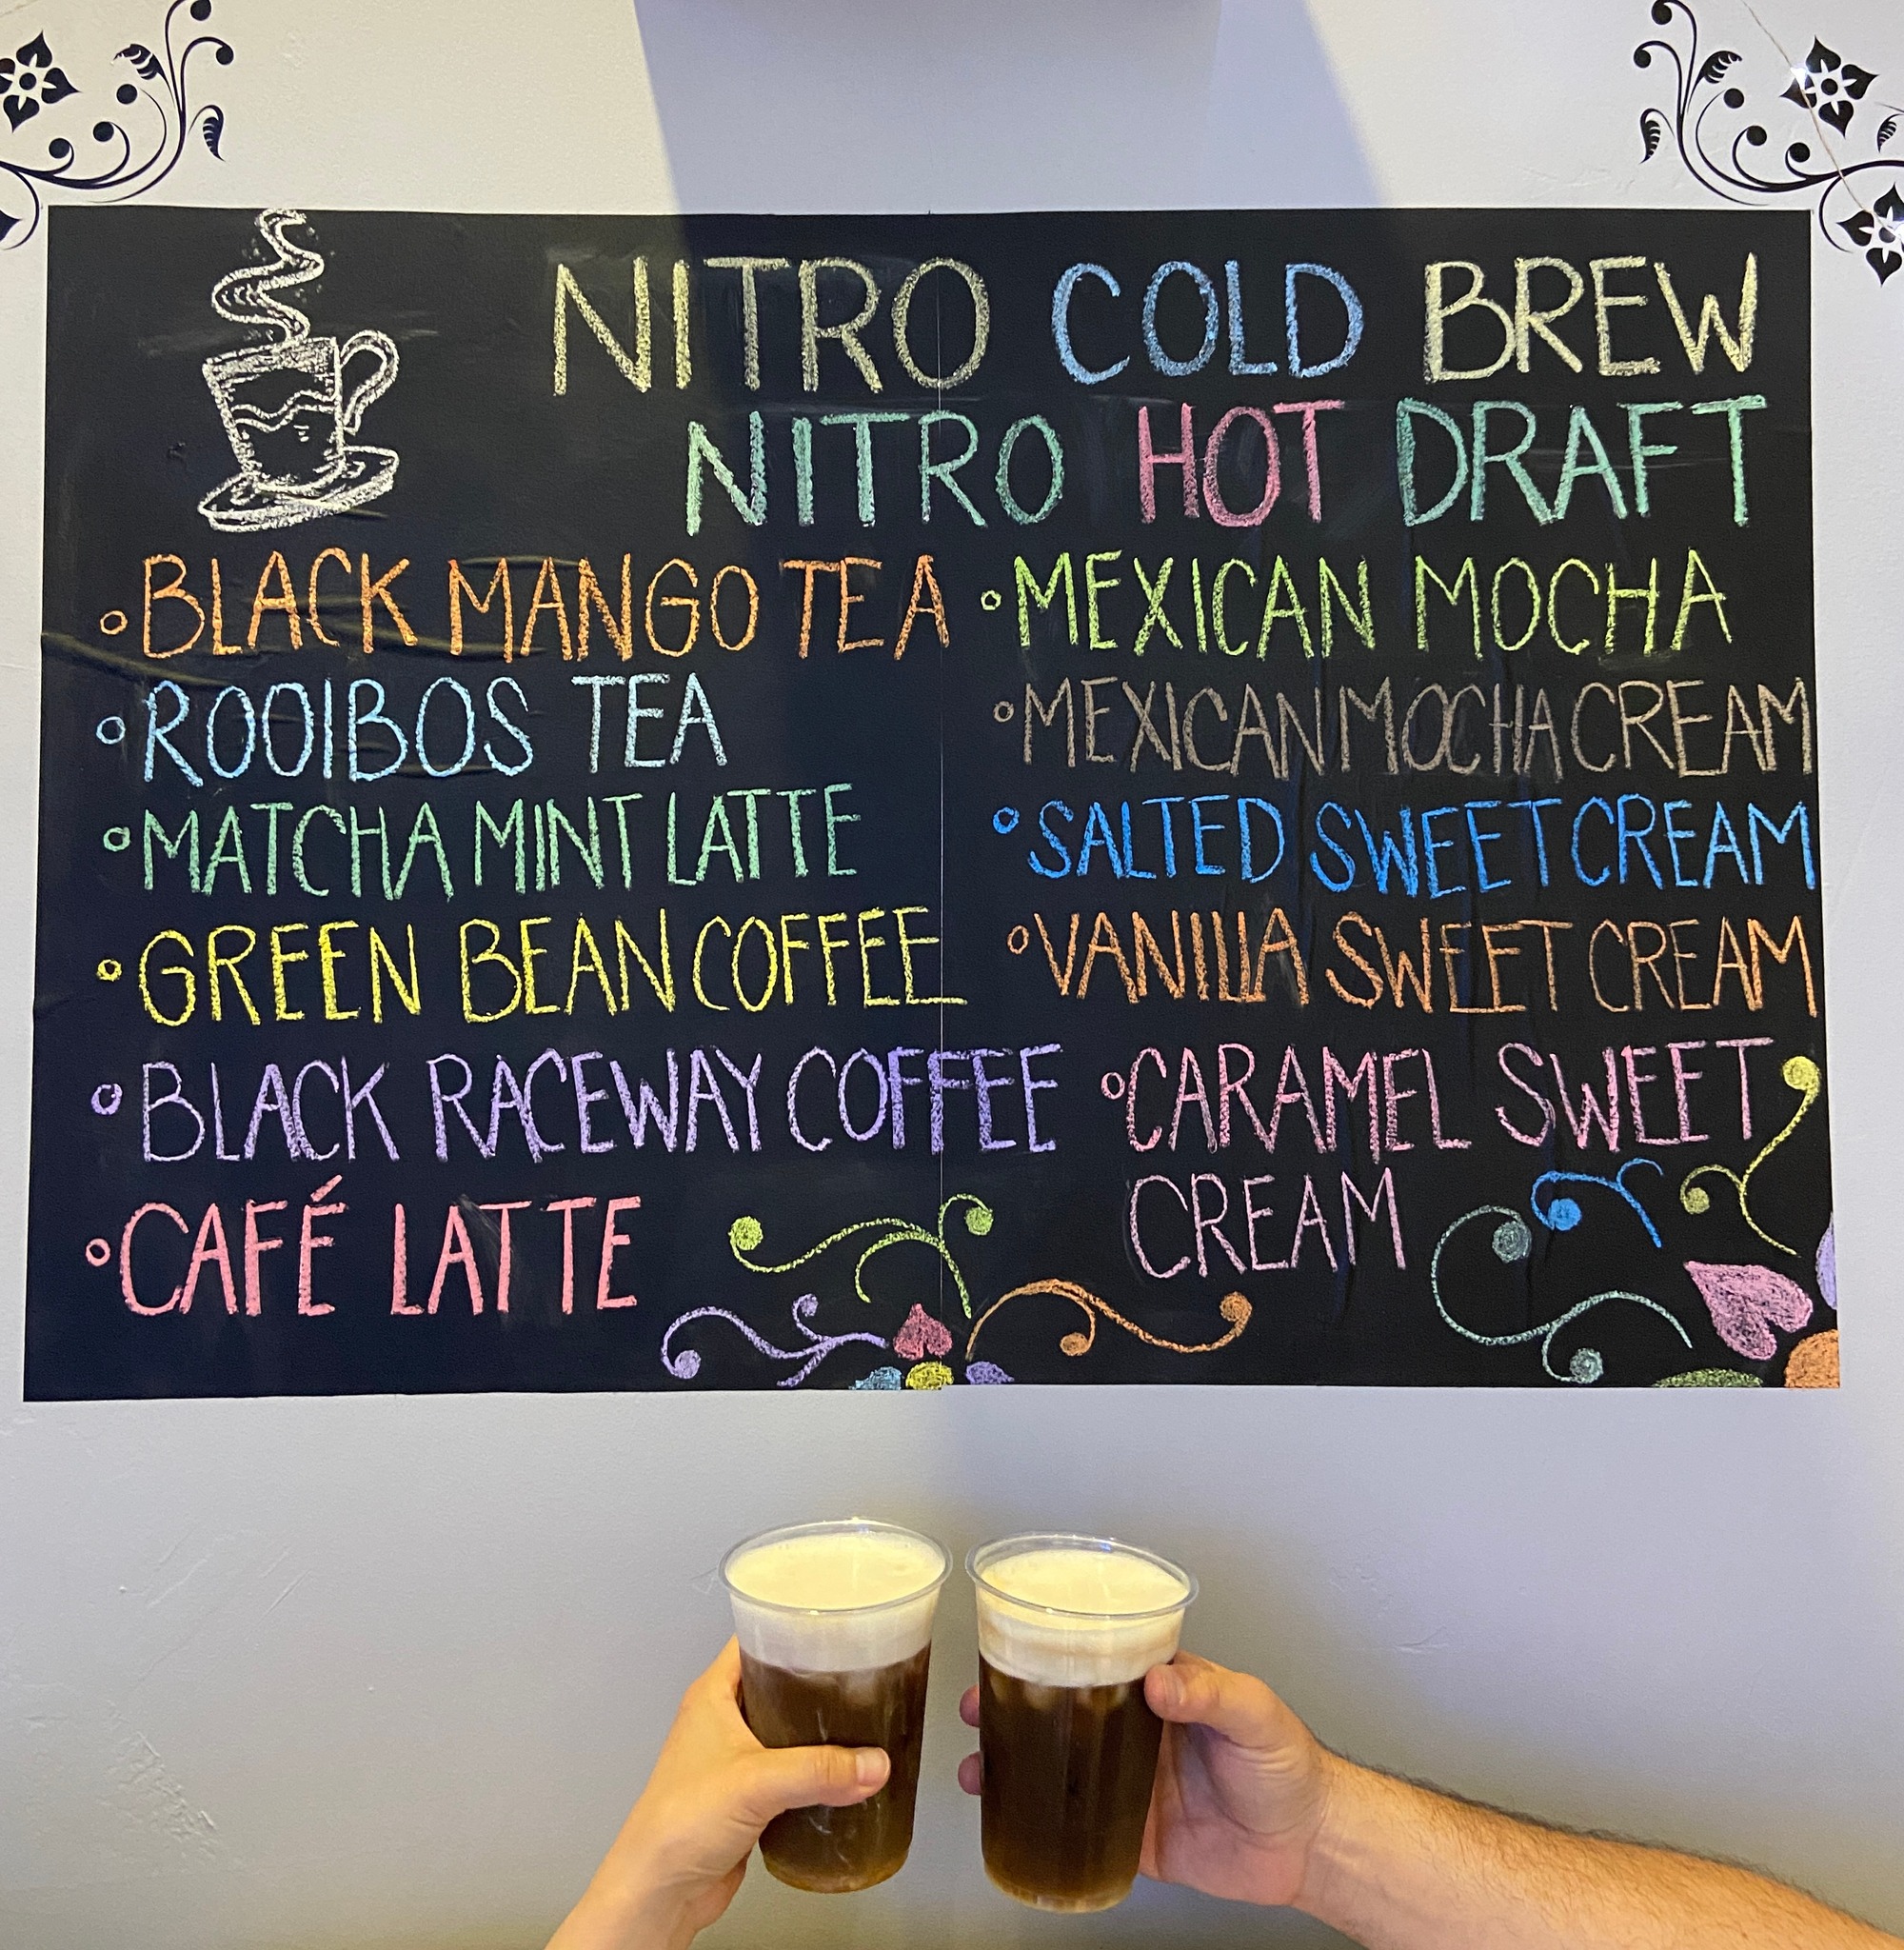 NITRO COLD BREW
NITRO HOT DRAFT
BLACK MANGO TEA
ROOIBOS TEA
MATCHA MINT LATTE
GREEN BEAN COFFEE
BLACK RACEWAY COFFEE
CAFÉ LATTE
MEXICAN MOCHA
MEXICAN MOCHA CREAM
SALTED SWEET CREAM
VANILLA SWEET CREAM
CARAMEL SWEET
CREAM